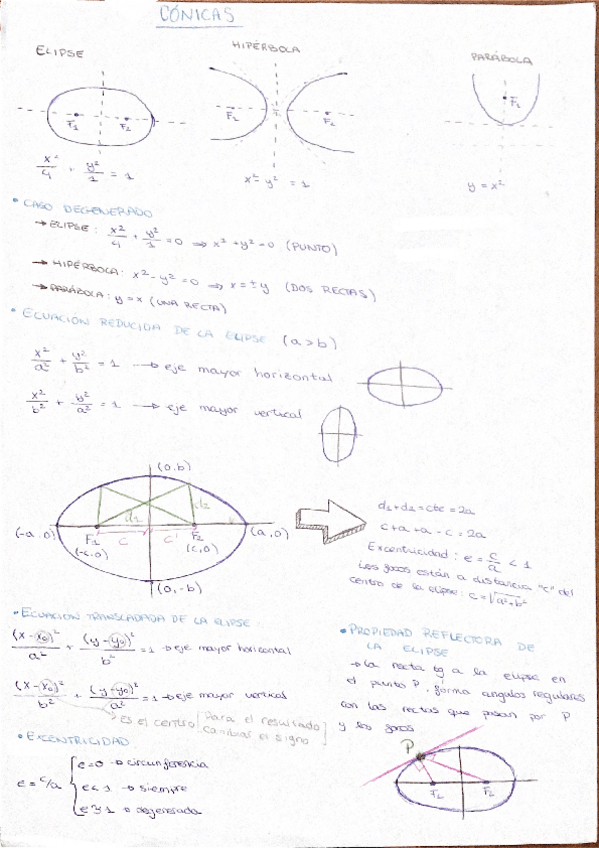 CÓNICAS
ELIPSE
HIPÉRBOLA
PARÁBOLA
F₁ F₂
F₁ F₂
F₁
x²/4 + y²/1 = 1
x² - y² = 1
y = x²
• CASO DEGENERADO
→ ELIPSE: x²/4 + y²/1 = 0 ⇒ x² + y² = 0 (PUNTO)
→ HIPÉRBOLA: x² - y² = 0 ⇒ x = ± y (DOS RECTAS)
→ PARÁBOLA: y = x (UNA RECTA)
• ECUACIÓN REDUCIDA DE LA ELIPSE (a > b)
x²/a² + y²/b² = 1 → eje mayor horizontal
x²/b² + y²/a² = 1 → eje mayor vertical
(0,b)
d₁ d₂
(-a,0) F₁ c c F₂ (a,0)
(-c,0) (c,0)
(0,-b)
d₁ + d₂ = cte = 2a
c + a + a - c = 2a
Excentricidad: e = c/a < 1
Los focos están a distancia "c" del
centro de la elipse: c = √a²-b²
• ECUACIÓN TRANSLADADA DE LA ELIPSE
(x - x₀)²/a² + (y - y₀)²/b² = 1 → eje mayor horizontal
(x - x₀)²/b² + (y - y₀)²/a² = 1 → eje mayor vertical
→ es el centro [Para el resultado
cambiar el signo]
• EXCENTRICIDAD
e = c/a { e = 0 → circunferencia
e < 1 → siempre
e ≥ 1 → degenerada
• PROPIEDAD REFLECTORA DE
LA ELIPSE
→ La recta tg a la elipse en
el punto P, forma angulos regulares
con las rectas que pasan por P
y los focos
P
F₁ F₂